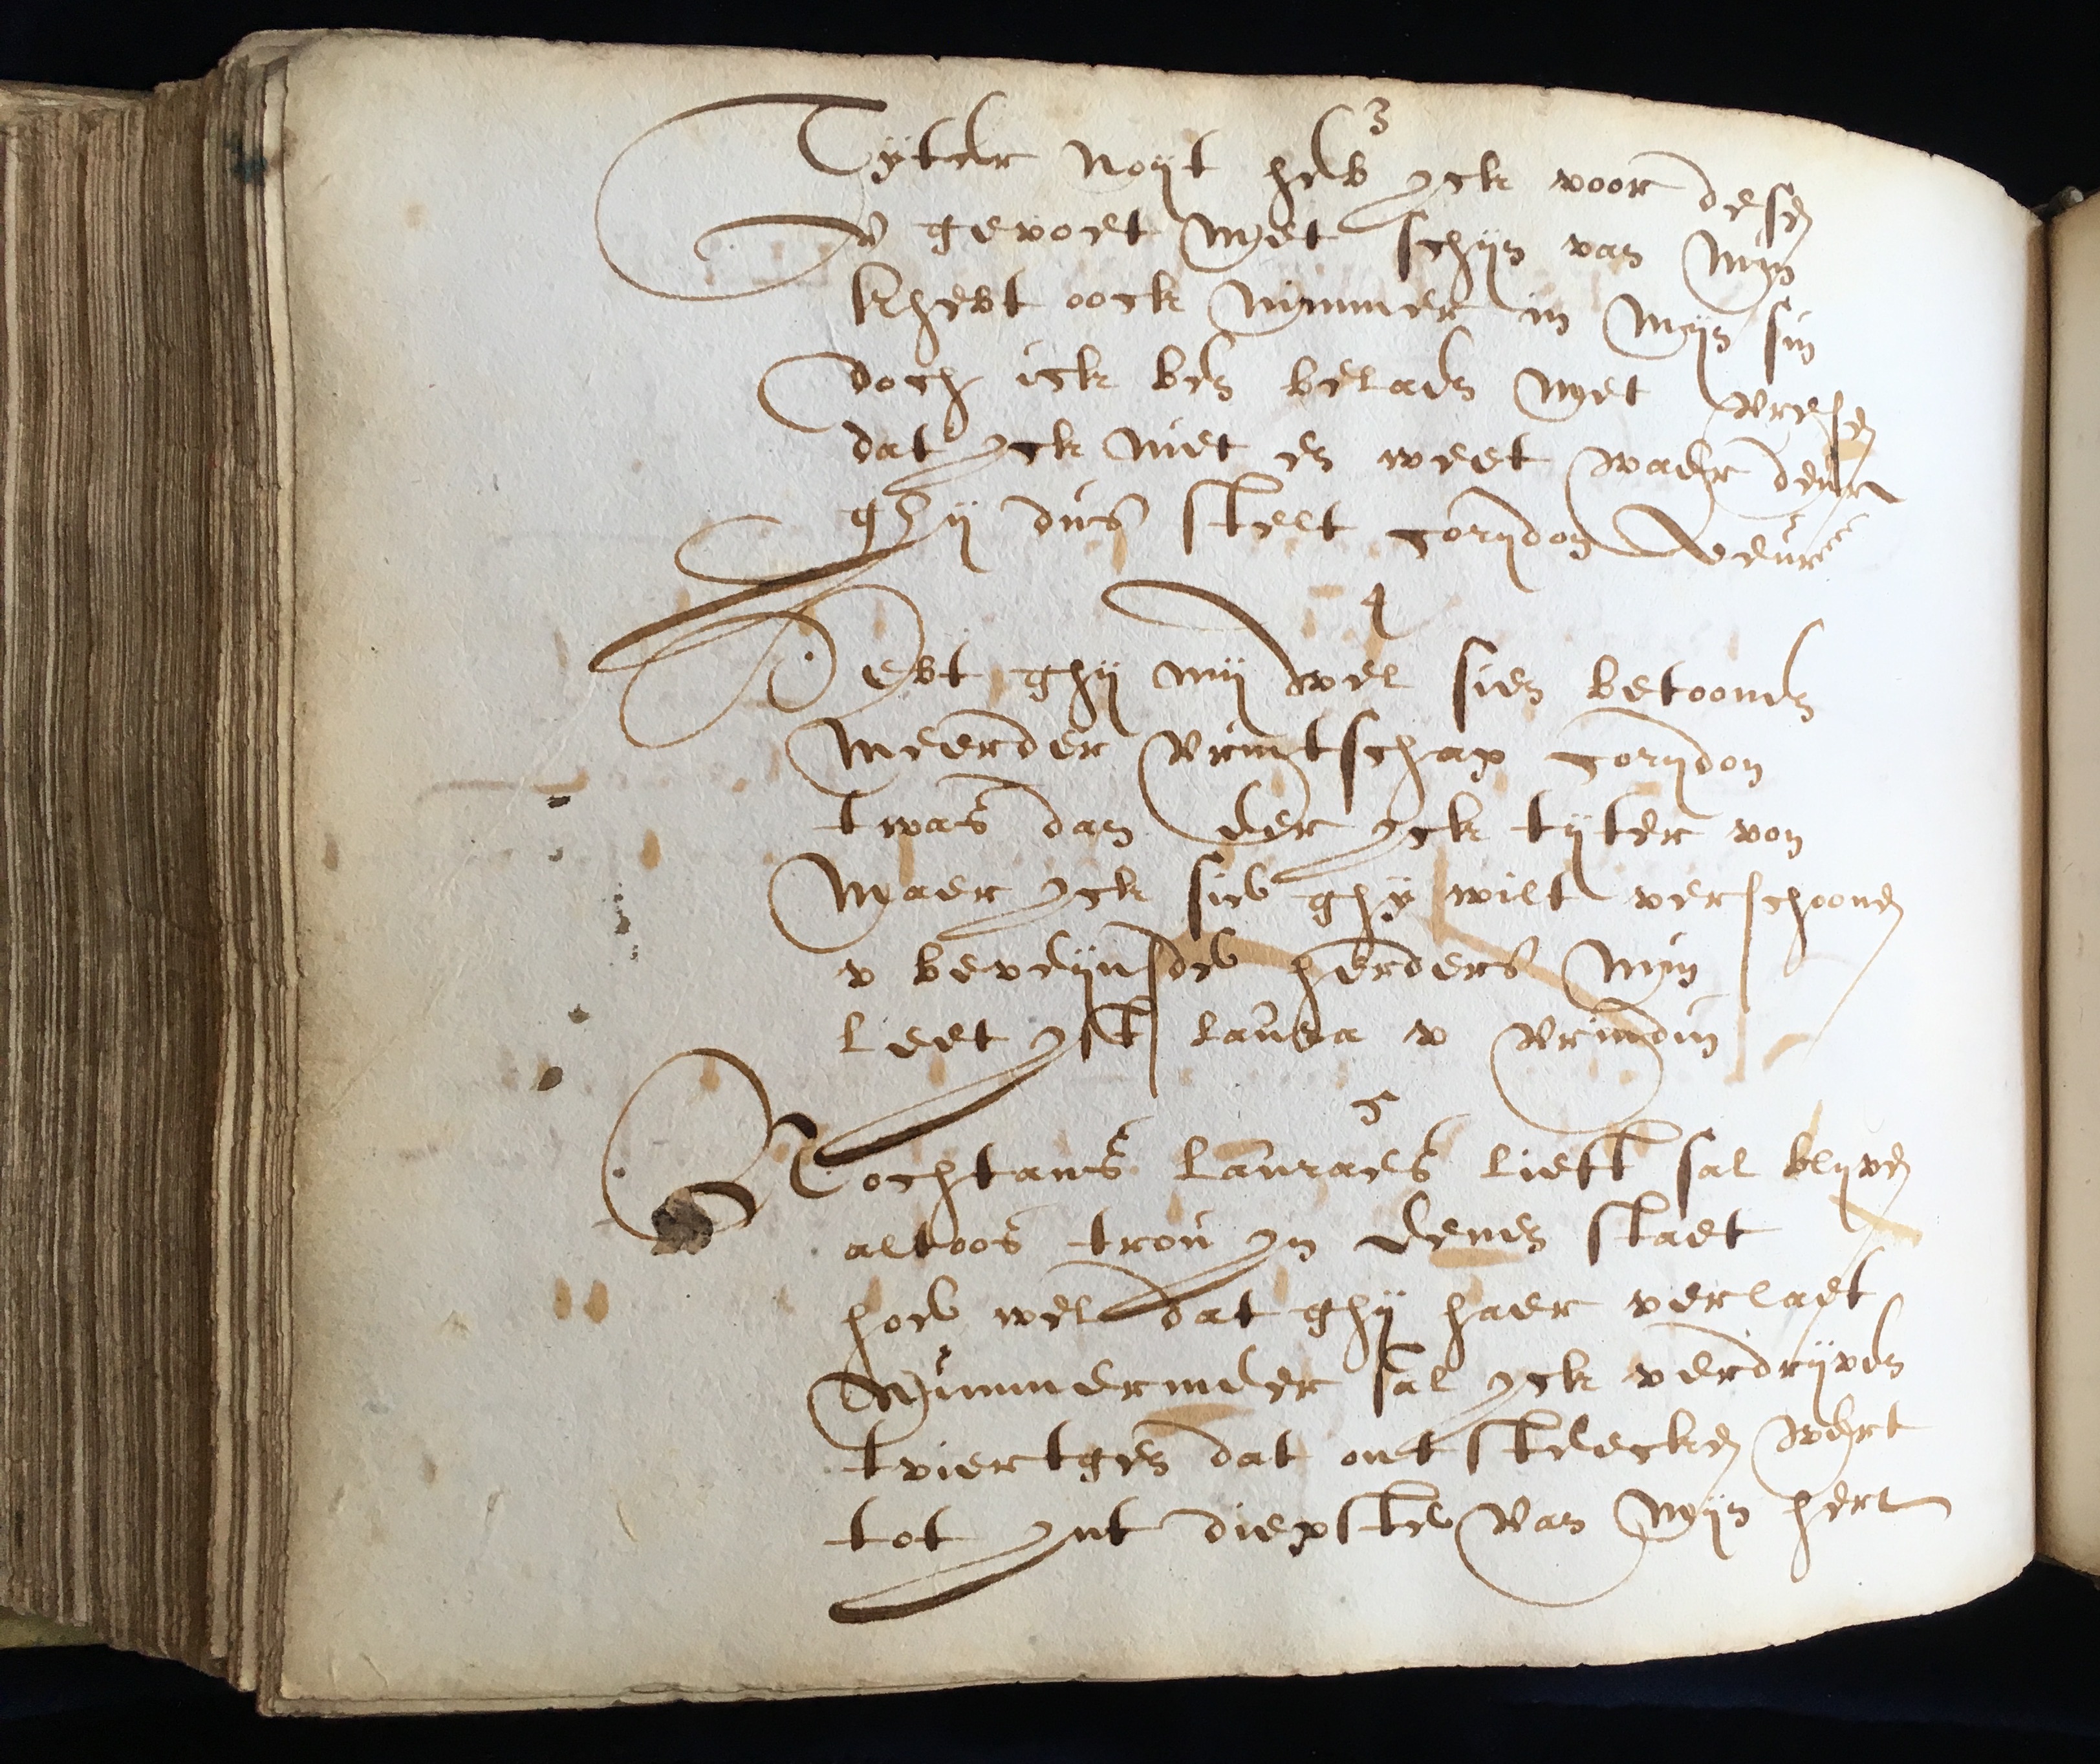 3
Tyter noijt heb yck voor desen
v gevoet met schijn van mijn
khebt oock nimmer in mijn sin
doch ick ben belaen met vresen
dat yck niet en weet waer deur
ghij dus stelt corijdon
4
Hebt ghij mij wel sien betoonen
meerder vrintschap corijdon
twas dan eer yck tijter von
maer yck sie ghij wilt verschoonen
v beveijnsde herders mijn
leet yst laura v vrindin
5
Nochtans lauraes lieft sal blijven
altoos trou yn eenen staet
hoe wel dat ghij haer verlaet
Nimmermeer sal yck verdrijven
tviertgen dat ontsteecken wert
tot ynt diepste van mijn hert